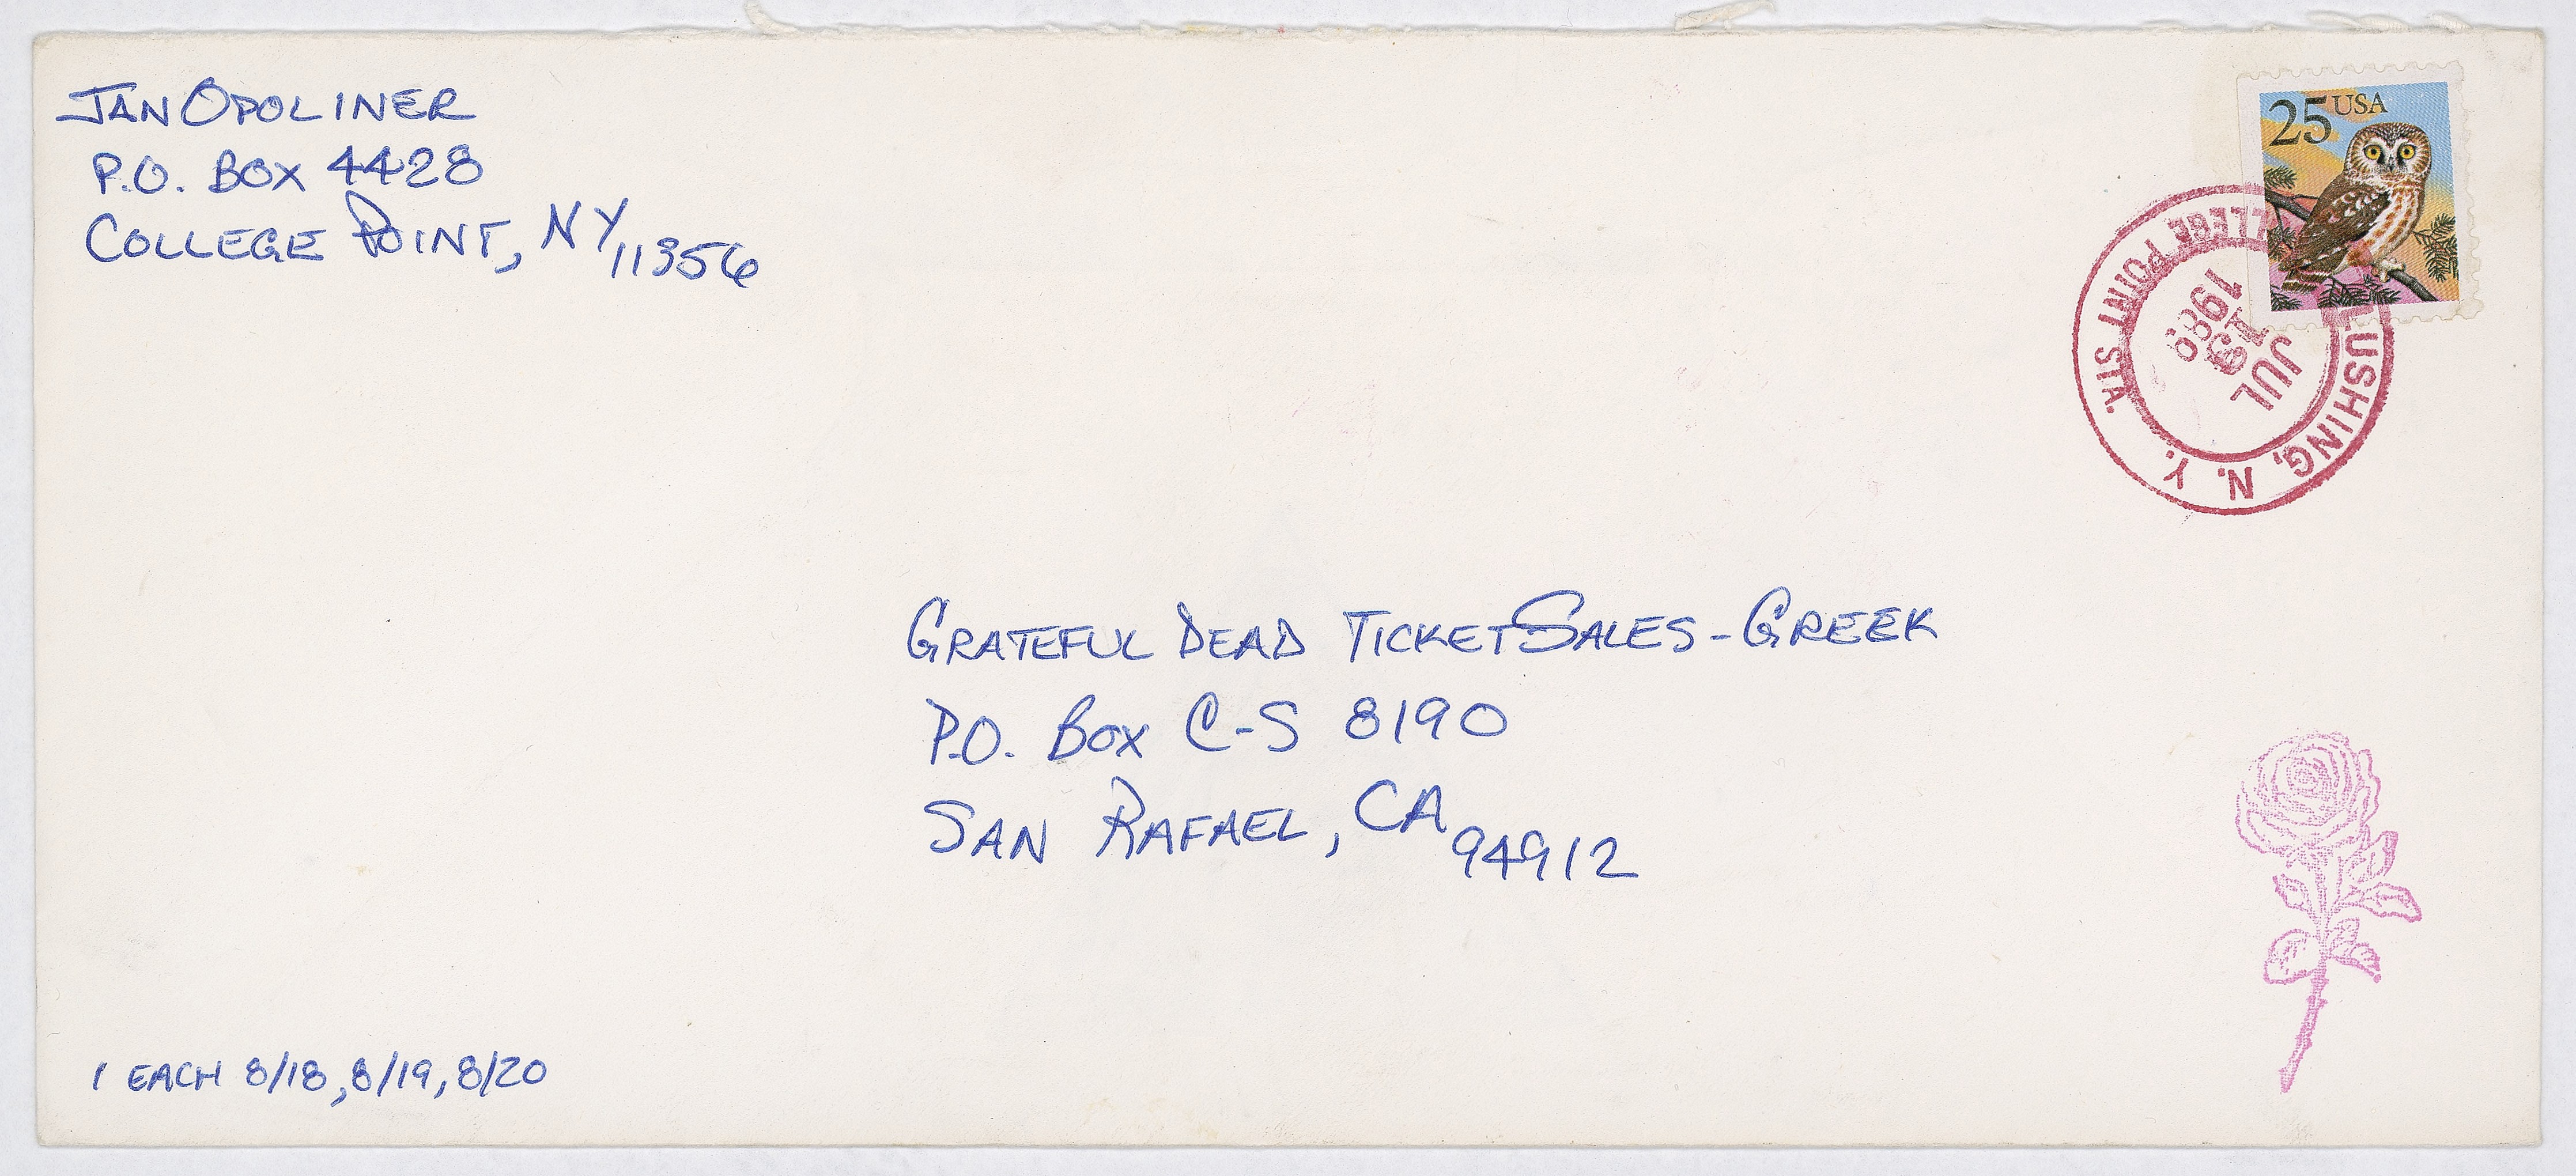 JAN OPOLINER
P.O. BOX 4428
COLLEGE POINT, NY 11356
25 USA
COLLEGE POINT STA.
FLUSHING, N.Y.
JUL
1989
GRATEFUL DEAD TICKET SALES - GREEK
P.O. BOX C-S 8190
SAN RAFAEL, CA 94912
1 EACH 8/18, 8/19, 8/20